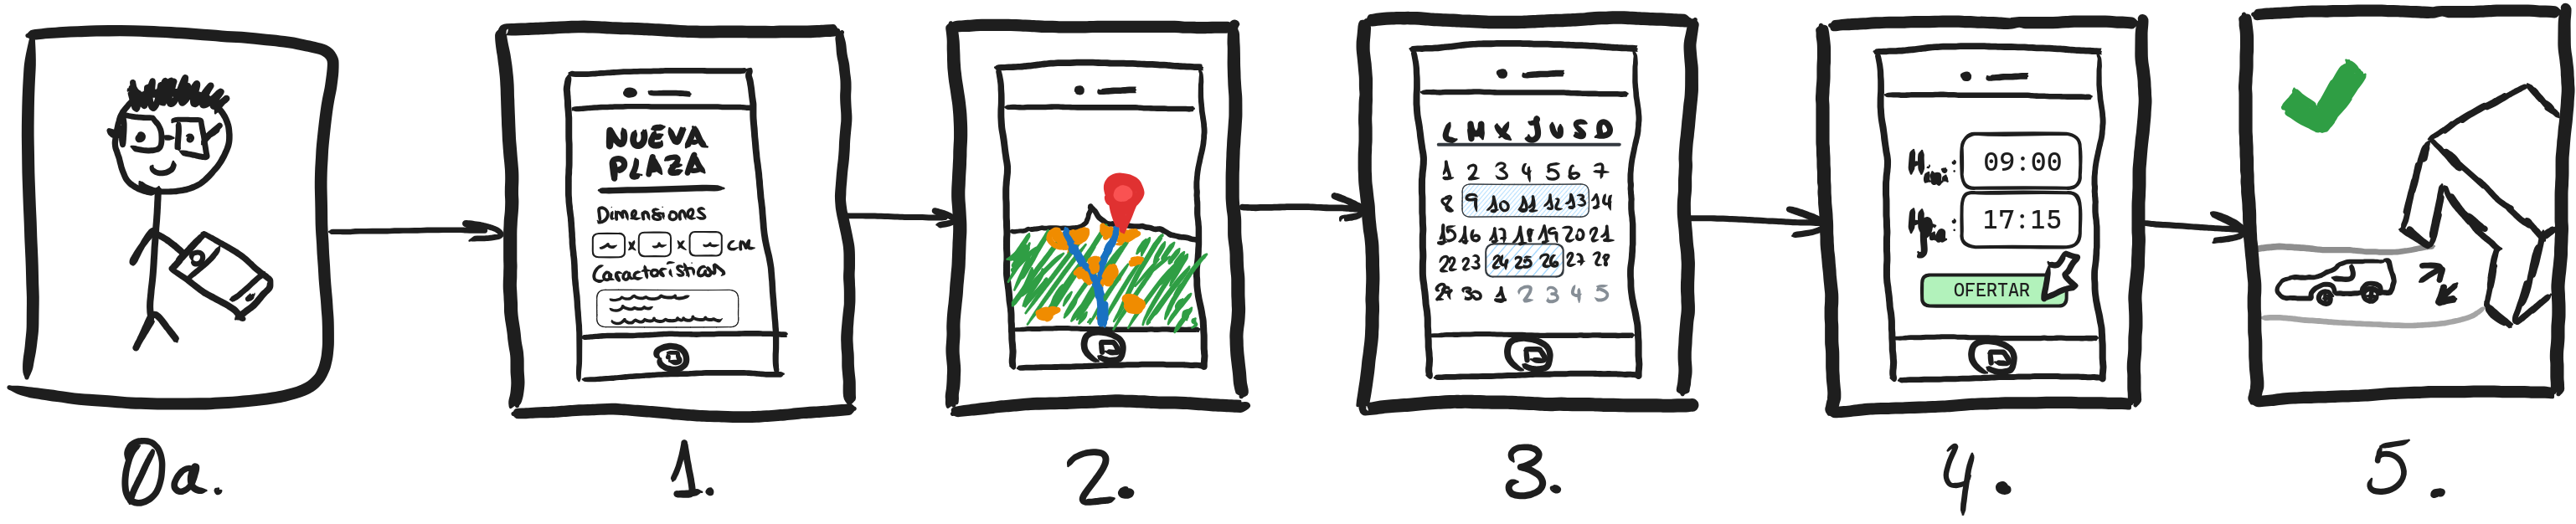 NUEVA
PLAZA
Dimensiones
x x cm
Características
L M X J V S D
1 2 3 4 5 6 7
8 9 10 11 12 13 14
15 16 17 18 19 20 21
22 23 24 25 26 27 28
29 30 1 2 3 4 5
09:00
17:15
OFERTAR
0a.
1.
2.
3.
4.
5.